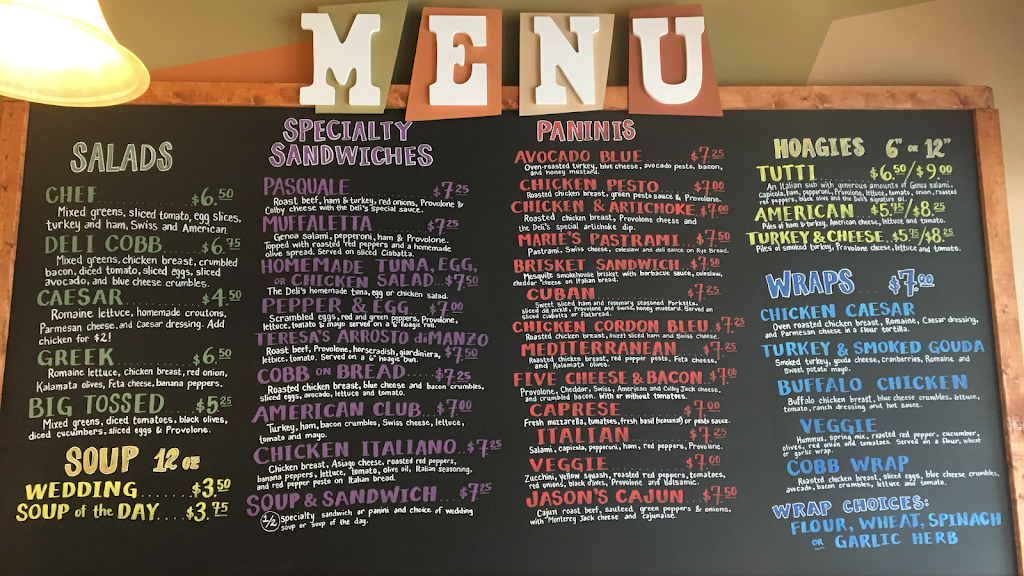 MENU
SALADS
CHEF $6.50
Mixed greens, sliced tomato, egg slices,
turkey and ham, Swiss and American.
DELI COBB $6.75
Mixed greens, chicken breast, crumbled
bacon, diced tomato, sliced eggs, sliced
avocado, and blue cheese crumbles.
CAESAR $4.50
Romaine lettuce, homemade croutons,
Parmesan cheese, and Caesar dressing. Add
chicken for $2!
GREEK $6.50
Romaine lettuce, chicken breast, red onion,
Kalamata olives, Feta cheese, banana peppers.
BIG TOSSED $5.25
Mixed greens, diced tomatoes, black olives,
diced cucumbers, sliced eggs & Provolone.
SOUP 12 oz
WEDDING......$3.50
SOUP of the DAY...$3.75
SPECIALTY
SANDWICHES
PASQUALE $7.25
Roast beef, ham & turkey, red onions, Provolone &
Colby cheese with the Deli's special sauce.
MUFFALETTA $7.25
Genoa salami, pepperoni, ham & Provolone.
Topped with roasted red peppers and a homemade
olive spread. Served on sliced Ciabatta.
HOMEMADE TUNA, EGG,
OR CHICKEN SALAD..$7.50
The Deli's homemade tuna, egg or chicken salad.
PEPPER & EGG $7.00
Scrambled eggs, red and green peppers, Provolone,
lettuce, tomato & mayo served on a 6" hoagie roll.
TERESA'S ARROSTO diMANZO
Roast beef, Provolone, horseradish, giardiniera, $7.50
lettuce, tomato. Served on a 6" hoagie bun.
COBB ON BREAD...$7.25
Roasted chicken breast, blue cheese and bacon crumbles,
sliced eggs, avocado, lettuce and tomato.
AMERICAN CLUB..$7.00
Turkey, ham, bacon crumbles, Swiss cheese, lettuce,
tomato and mayo.
CHICKEN ITALIANO.$7.25
Chicken breast, Asiago cheese, roasted red peppers,
banana peppers, lettuce, tomato, olive oil, Italian seasoning,
and red pepper pesto on Italian bread.
SOUP & SANDWICH...$7.25
1/2 specialty sandwich or panini and choice of wedding
soup or soup of the day.
PANINIS
AVOCADO BLUE $7.25
Oven-roasted turkey, blue cheese, avocado pesto, bacon,
and honey mustard.
CHICKEN PESTO $7.00
Roasted chicken breast, green pesto sauce & Provolone.
CHICKEN & ARTICHOKE $7.00
Roasted chicken breast, Provolone cheese and
the Deli's special artichoke dip.
MARIE'S PASTRAMI $7.50
Pastrami, Swiss cheese, coleslaw and deli sauce on Rye Bread.
BRISKET SANDWICH $7.50
Mesquite smokehouse brisket with barbecue sauce, coleslaw,
cheddar cheese on Italian bread.
CUBAN $7.25
Sweet sliced ham and rosemary seasoned Porketta,
sliced dill pickle, Provolone and Swiss, honey mustard. Served on
sliced Ciabatta or flatbread.
CHICKEN CORDON BLEU $7.25
Roasted chicken breast, sweet sliced ham and Swiss cheese.
MEDITERRANEAN $7.25
Roasted chicken breast, red pepper pesto, Feta cheese,
and Kalamata olives.
FIVE CHEESE & BACON $7.00
Provolone, Cheddar, Swiss, American and Colby Jack cheese,
and crumbled bacon. With or without tomatoes.
CAPRESE $7.00
Fresh mozzarella, tomatoes, fresh basil (seasonal) or pesto sauce.
ITALIAN $7.25
Salami, capicola, pepperoni, ham, red peppers, Provolone.
VEGGIE $7.00
Zucchini, yellow squash, roasted red peppers, tomatoes,
red onions, black olives, Provolone and Balsamic.
JASON'S CAJUN $7.50
Cajun roast beef, sauteed green peppers & onions,
with Monterey Jack cheese and cajunaise.
HOAGIES 6" OR 12"
TUTTI $6.50/$9.00
An Italian sub with generous amounts of Genoa salami,
capicola, ham, pepperoni, Provolone, lettuce, tomato, onion, roasted
red peppers, black olives and the deli's signature oil.
AMERICAN $5.75/$8.25
Piles of ham & turkey, American cheese, lettuce and tomato.
TURKEY & CHEESE $5.75/$8.25
Piles of smoked turkey, Provolone cheese, lettuce and tomato.
WRAPS $7.00
CHICKEN CAESAR
Oven roasted chicken breast, Romaine, Caesar dressing,
and Parmesan cheese in a flour tortilla.
TURKEY & SMOKED GOUDA
Smoked turkey, gouda cheese, cranberries, Romaine and
Sweet potato mayo.
BUFFALO CHICKEN
Buffalo chicken breast, blue cheese crumbles, lettuce,
tomato, ranch dressing and hot sauce.
VEGGIE
Hummus, spring mix, roasted red pepper, cucumber,
olives, red onion and tomatoes. Served on a flour, wheat
or garlic wrap.
COBB WRAP
Roasted chicken, sliced eggs, blue cheese crumbles,
avocado, bacon crumbles, lettuce and tomato.
WRAP CHOICES:
FLOUR, WHEAT, SPINACH
OR GARLIC HERB